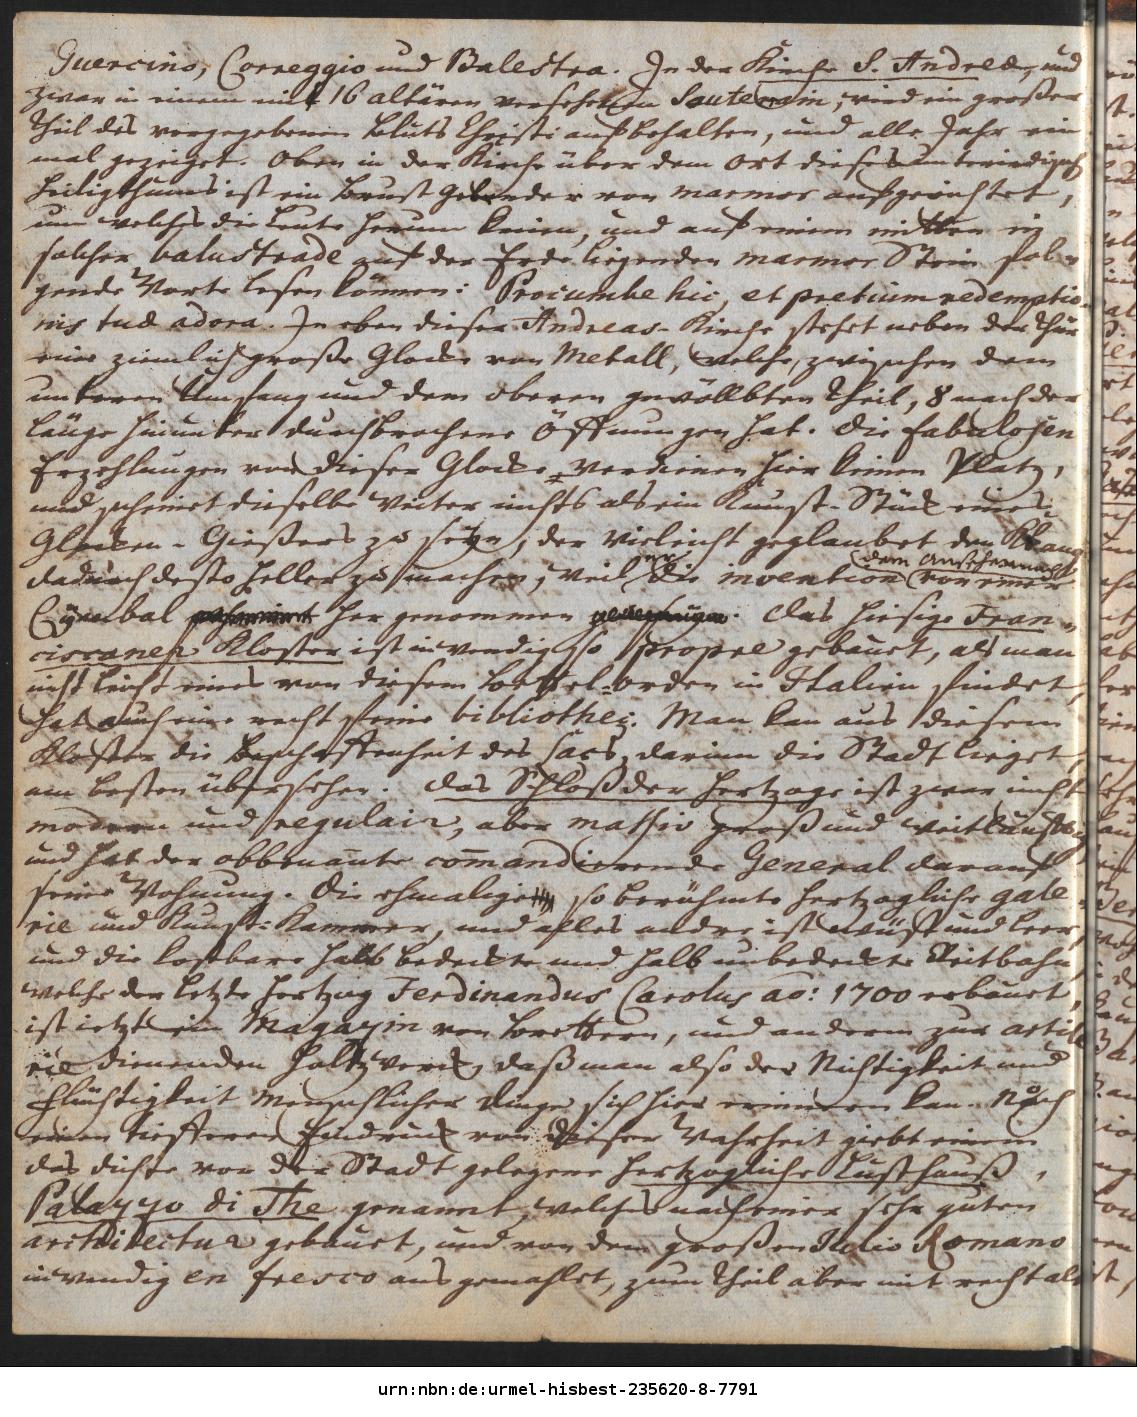 Guercino, Correggio und Balestra. In der Kirche S. Andreæ, und
zwar in einem mit 16 altären versehenen Souterain, wird ein großer
theil des vorgegebenen Bluts Christi aufbehalten, und alle Jahr ein
mal gezeiget. Oben in der Kirche über dem Ort dieses unterirdisch
heiligthums ist ein Brust Gelender von marmor aufgerichtet,
um welches die Leute herum knien, und auf einem mitten in
solcher balustrade auf der Erde liegenden marmor Stein fol-
gende Worte lesen können: Procumbe hic, et pretium redemptio-
nis tuæ adora. In eben dieser Andreas-Kirche stehet neben der Thür
eine zimlich große Glocke von Metall, welche, zwischen dem
unteren Umfang und dem oberen gewölbten Theil, 8 nach der
länge hinunter durchbrochene Öffnungen hat. Die fabulosen
Erzehlungen von dieser Glocke verdienen hier keinen Platz,
und scheinet dieselbe weiter nichts als ein Kunst-Stück eines
Glocken-Gießers zu seyn, der vieleicht geglaubet den Klang
dadurch desto heller zu machen, weil er die invention dem Ansehen nach von einer
Cymbal her genommen. Das hiesige Fran-
ciscaner Kloster ist inwendig so propre gebauet, als man
nicht leicht eines von diesem Bettel-Orden in Italien findet,
hat auch eine recht feine bibliothec. Man kan aus diesem
Kloster die Beschaffenheit des Lacs, darinn die Stadt lieget,
am besten übersehen. Das Schloß der Hertzoge ist zwar nicht
modern und regulair, aber massiv groß und weitläuftig,
und hat der obbenante comandierende General darauf
seine Wohnung. Die ehmalige so berühmte Hertzogliche gale-
rie und Kunst-Kammer, und alles andre ist wüst und leer,
und die kostbare halb bedeckte und halb unbedeckte Reitbahn
welche der letzte Hertzog Ferdinandus Carolus ao: 1700 erbauet,
ist ietzt ein Magazin von brettern, und anderm zur artille
rie dienenden Holtzwerck, daß man also der Nichtigkeit und
Flüchtigkeit Menschlicher Dinge sich hier erinnern kan. Noch
einen tiefferen Eindruck von dieser Wahrheit giebt einem
das dichte von der Stadt gelegene Hertzogliche Lusthauß,
Palazzo di The genannt, welches nach einer sehr guten
architectur gebauet, und von dem großen Julio Romano
inwendig en fresco ausgemahlet, zum Theil aber mit recht al
urn:nbn:de:urmel-hisbest-235620-8-7791